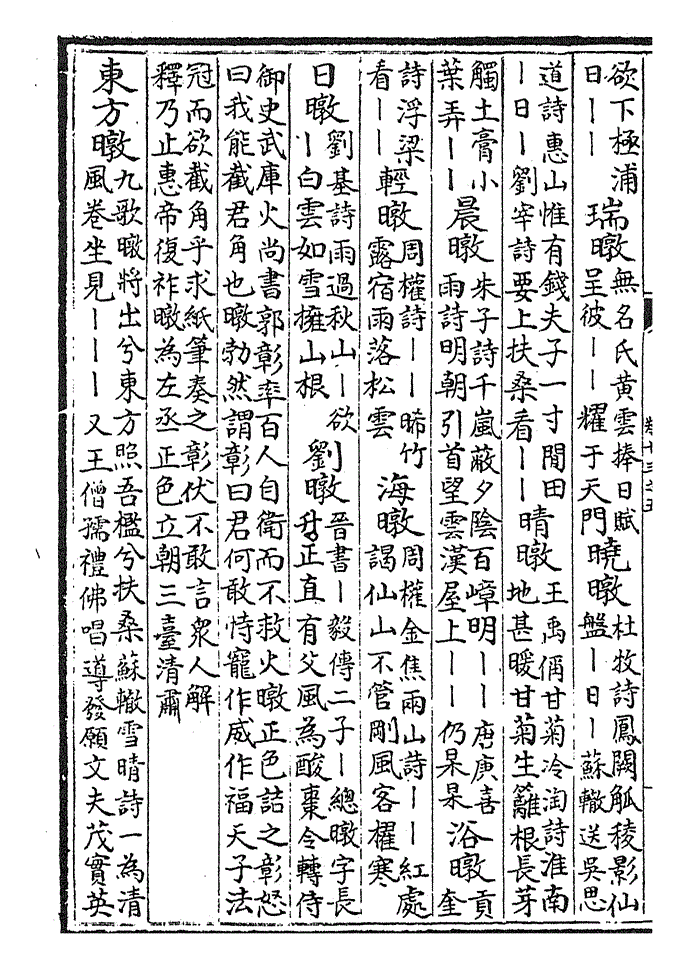 欲下極浦
日丨丨
瑞暾
無名氏黃雲捧日賦
呈彼丨丨耀于天門
曉暾
杜牧詩鳳闕觚稜影仙
盤丨日丨蘇轍送吳思
道詩惠山惟有錢夫子一寸閒田
丨日丨劉宰詩要上扶桑看丨丨
晴暾
王禹偁甘菊冷淘詩淮南
地甚暖甘菊生籬根長芽
觸土膏小
葉弄丨丨
晨暾
朱子詩千嵐蔽夕陰百嶂明丨丨唐庚喜
雨詩明朝引首望雲漢屋上丨丨仍杲杲
浴暾
貢
奎
詩浮梁
看丨丨
輕暾
周權詩丨丨晞竹
露宿雨落松雲
海暾
周權金焦兩山詩丨丨紅處
謁仙山不管剛風客櫂寒
日暾
劉基詩雨過秋山丨欲
丨白雲如雪擁山根
劉暾
晉書丨毅傳二子丨總暾字長
升正直有父風為酸棗令轉侍
御史武庫火尚書郭彰率百人自衛而不救火暾正色詰之彰怒
曰我能截君角也暾勃然謂彰曰君何敢恃寵作威作福天子法
冠而欲截角乎求紙筆奏之彰伏不敢言眾人解
釋乃止惠帝復祚暾為左丞正色立朝三臺清肅
東方暾
九歌暾將出兮東方照吾檻兮扶桑蘇轍雪晴詩一為清
風卷坐見丨丨丨又王僧孺禮佛唱導發願文夫茂實英